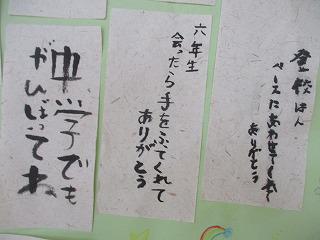 登校はん
ペースにあわせてくれて
ありがとう
六年生
会ったら手をふてくれて
ありがとう
中学でも
がんばってね